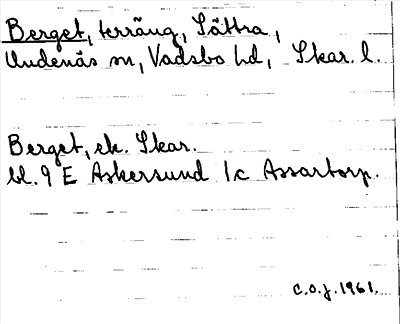 Berget, terräng, Sättra,
Undenäs sn, Vadsbo hd, Skar. l.
Berget, ek. Skar.
bl. 9 E Askersund 1c Assartorp.
c.o.j. 1961.